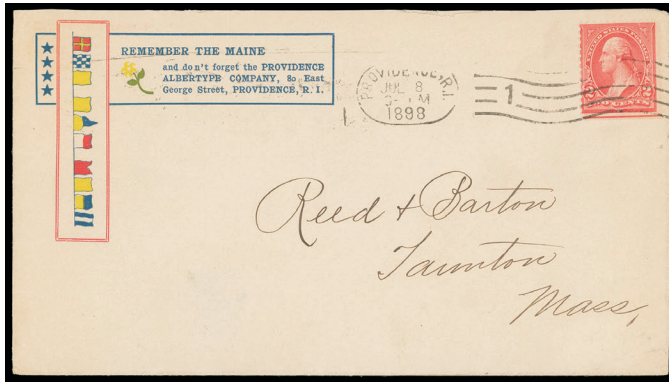 REMEMBER THE MAINE
and do n't forget the PROVIDENCE
ALBERTYPE COMPANY, 80 East
George Street, PROVIDENCE, R. I.
PROVIDENCE, R.I.
JUL 8
1898
1
UNITED STATES POSTAGE
2 TWO CENTS 2
Reed & Barton
Taunton
Mass,